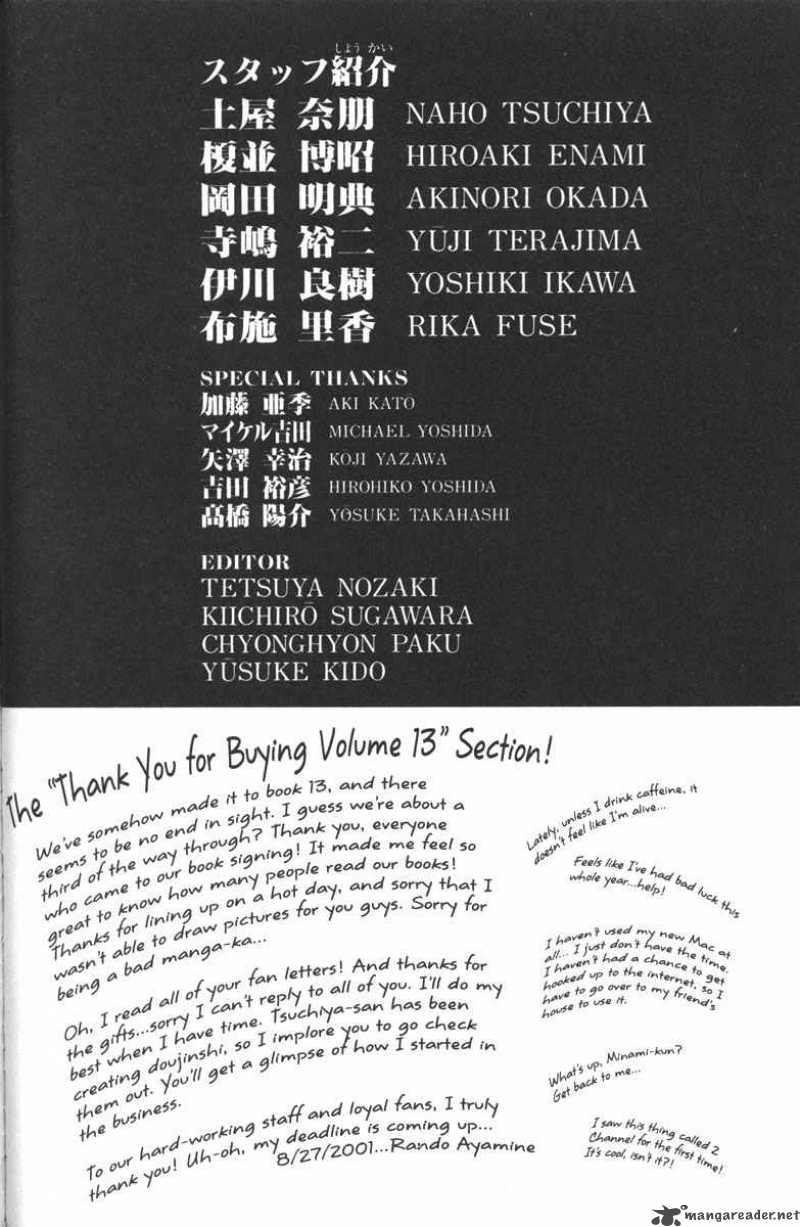 しょうかい
スタッフ紹介
土屋 奈朋 NAHO TSUCHIYA
榎並 博昭 HIROAKI ENAMI
岡田 明典 AKINORI OKADA
寺嶋 裕二 YŪJI TERAJIMA
伊川 良樹 YOSHIKI IKAWA
布施 里香 RIKA FUSE
SPECIAL THANKS
加藤 亜季 AKI KATO
マイケル吉田 MICHAEL YOSHIDA
矢澤 幸治 KOJI YAZAWA
吉田 裕彦 HIROHIKO YOSHIDA
髙橋 陽介 YOSUKE TAKAHASHI
EDITOR
TETSUYA NOZAKI
KIICHIRŌ SUGAWARA
CHYONGHYON PAKU
YŪSUKE KIDO
The "Thank You for Buying Volume 13" Section!
We've somehow made it to book 13, and there
seems to be no end in sight. I guess we're about a
third of the way through? Thank you, everyone
who came to our book signing! It made me feel so
great to know how many people read our books!
Thanks for lining up on a hot day, and sorry that I
wasn't able to draw pictures for you guys. Sorry for
being a bad manga-ka...
Oh, I read all of your fan letters! And thanks for
the gifts...sorry I can't reply to all of you. I'll do my
best when I have time. Tsuchiya-san has been
creating doujinshi, so I implore you to go check
them out. You'll get a glimpse of how I started in
the business.
To our hard-working staff and loyal fans, I truly
thank you! Uh-oh, my deadline is coming up...
8/27/2001...Rando Ayamine
Lately, unless I drink caffeine, it
doesn't feel like I'm alive...
Feels like I've had bad luck this
whole year...help!
I haven't used my new Mac at
all... I just don't have the time.
I haven't had a chance to get
hooked up to the internet, so I
have to go over to my friend's
house to use it.
What's up, Minami-kun?
Get back to me...
I saw this thing called 2
Channel for the first time!
It's cool, isn't it?!
mangareader.net